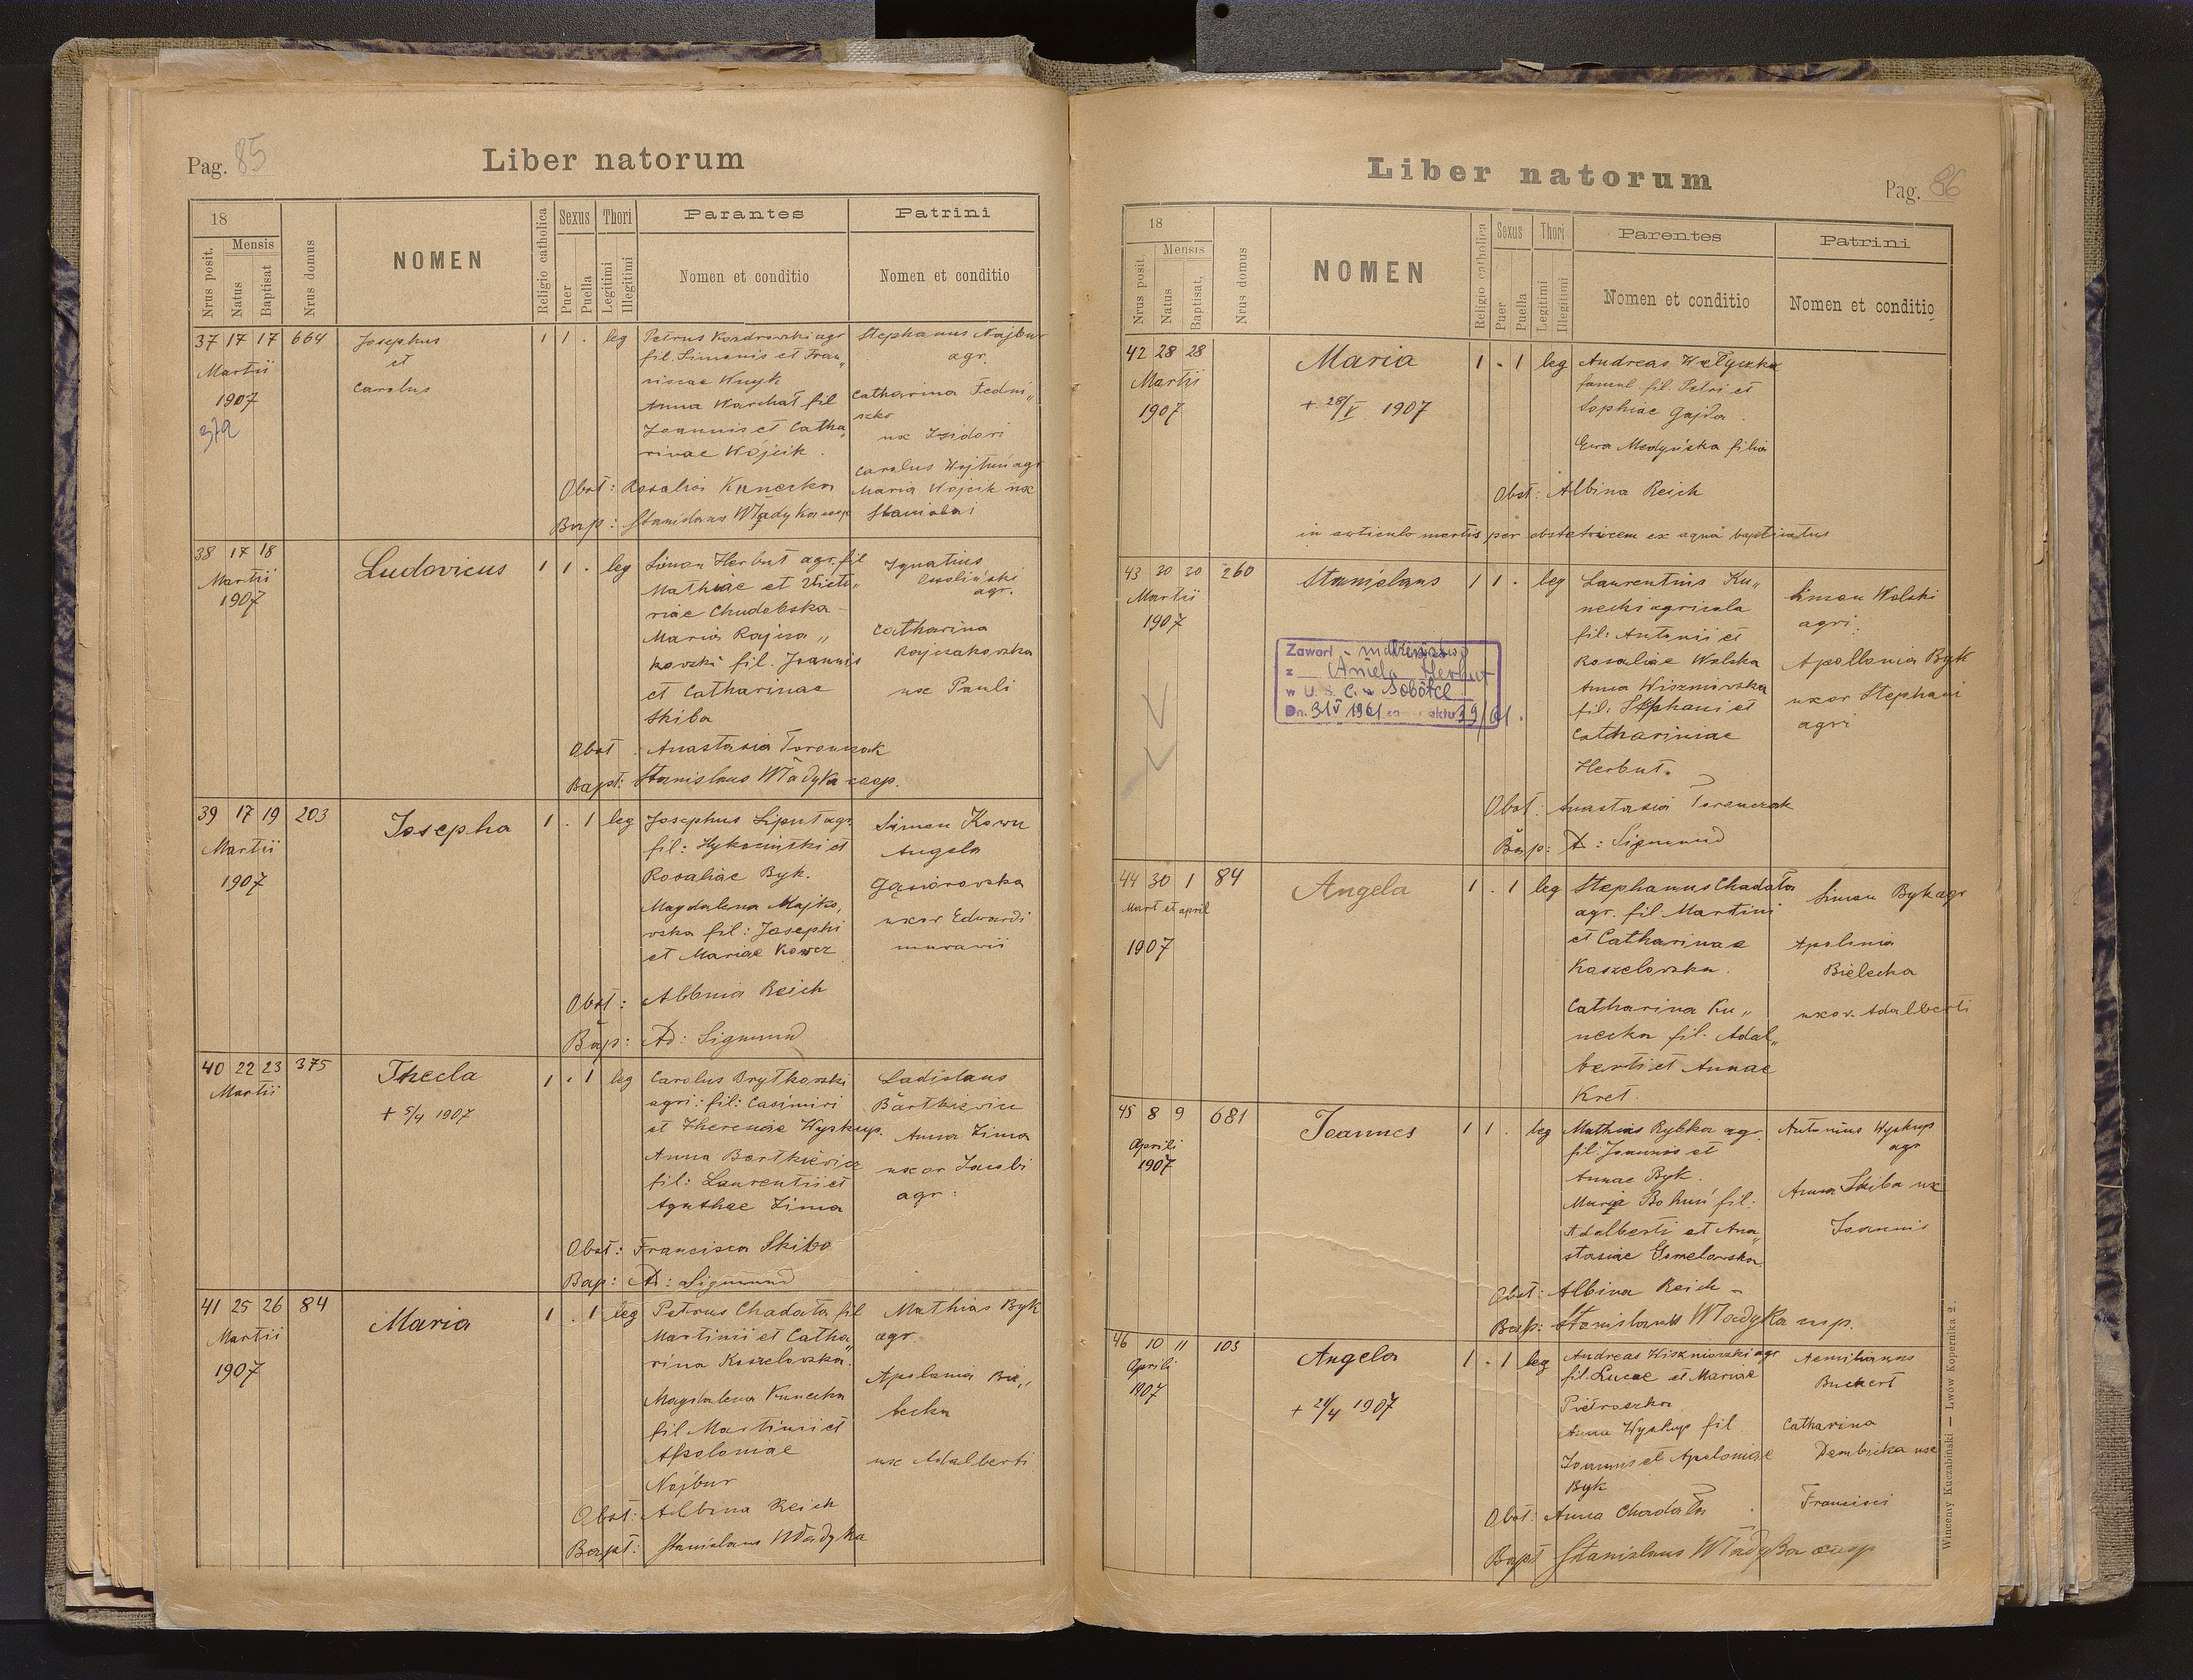 Pag. 85
Liber natorum
18
Mensis
Nrus posit.
Natus
Baptisat
Nrus domus
NOMEN
Religio catholica
Sexus
Puer
Puella
Thori
Legitimi
Illegitimi
Parantes
Nomen et conditio
Patrini
Nomen et conditio
37 17 17 664
Martii
1907
Josephus
et
Carolus
1 1 . leg
Petrus Kozdrowski agr
fil. Simonis et Fran„
ciscae Knyk
Anna Warchał fil
Joannis et Catha„
rinae Wójcik.
Stephanus Najbur
agr.
Catharina Fedni„
szko
ux Izidori
Carolus Wojtuń agr
Maria Wojcik ux
Stanislai
Obst: Rosalia Kunecka
Bap: Stanislaus Władyka
38 17 18
Martii
1907
Ludovicus
1 1 . leg
Simon Herbut agr. fil
Mathiae et Victo„
riae Chudobska
Maria Rajza„
kowski fil. Joannis
et Catharinae
Skiba
Ignatius
agr.
Catharina
Rajzakowska
ux Pauli
Obst Anastasia Toronczak
Bapt: Stanislaus Władyka coop.
39 17 19 203
Martii
1907
Josepha
1 . 1 leg
Josephus Liput agr
fil: et
Rosaliae Byk.
Magdalena Majko„
wska fil: Josephi
et Mariae Kowcz
Simon Kowcz
Angela
Gąsiorowska
uxor Edwardi
murarii
Obst: Albina Reich
Bap: A: Sigmund
40 22 23 375
Martii
Thecla
+ 5/4 1907
1 . 1 leg
Carolus Brytkowski
agri: fil: Casimiri
et Theresiae Wyskup.
Anna Bartkiewicz
fil: Laurentii et
Agathae Zima
Ladislaus
Bartkiewicz
Anna Zima
uxor Jacobi
agr:
Obst: Francisca Skiba
Bap: A: Sigmund
41 25 26 84
Martii
1907
Maria
1 . 1 leg
Petrus Chadała fil
Martinii et Catha„
rina Koszelowska.
Magdalena Kunecka
fil Martini et
Apoloniae
Najbur
Mathias Byk
agr.
Apolania Bie„
lecka
ux Adalberti
Obst: Albina Reich
Bapt: Stanislaus Władyka
Liber natorum
Pag. 86
18
Mensis
Nrus posit.
Natus
Baptisat.
Nrus domus
NOMEN
Religio catholica
Sexus
Puer
Puella
Thori
Legitimi
Illegitimi
Parentes
Nomen et conditio
Patrini
Nomen et conditio
42 28 28
Martii
1907
Maria
+ 28/V 1907
1 . 1 leg
Andreas Wełyczka
famul. fil. Petri et
Sophiae Gajda.
Ewa Medyńska filia
Obst: Albina Reich
in articulo mortis per obstetricem ex aqua baptisatus
43 30 30 260
Martii
1907
Stanislaus
1 1 . leg
Laurentius Ku„
necki agricola
fil: Antonii et
Rosaliae Wolska
Anna Wiszniowska
fil: Stephani et
Cathariniae
Herbut.
Simon Wolski
agri.
Apollonia Byk
uxor Stephani
agri
Zawarł małżeństwo
z Aniela Herbut
w U.S.C. w Sobótce
Dn. 31 V 1961 aktu 39/61.
Obst: Anastasia Toronczak
Bap: A: Sigmund
44 30 1 84
Mart et april
1907
Angela
1 . 1 leg
Stephanus Chadała
agr. fil. Martini
et Catharinae
Koszelowska.
Catharina Ku„
necka fil. Adal„
berti et Annae
Kret.
Simon Byk agr
Apolonia
Bielecka
uxor. Adalberti
45 8 9 681
Aprili
1907
Joannes
1 1 . leg
Mathias Rybka agr.
fil. Joannis et
Annae Byk.
Maria Bohuń fil:
Adalberti et Ana„
stasiae Gomelowska
Antonius Wyskup
agr
Anna Skiba ux
Joannis
Obst: Albina Reich –
Bap: Stanislaus Władyka
46 10 11 103
Aprili
1907
Angela
+ 24/4 1907
1 . 1 leg
Andreas Wiszniowski agr
fil. Lucae et Mariae
Pietraszko
Anna Wyskup fil
Joannis et Apoloniae
Byk
Aemilianus
Buchert
Catharina
Dembicka ux
Francisci
Obst: Anna Chadała
Bapt Stanislaus Władyka coop
Wincenty Kuczabiński — Lwów Kopernika 2.